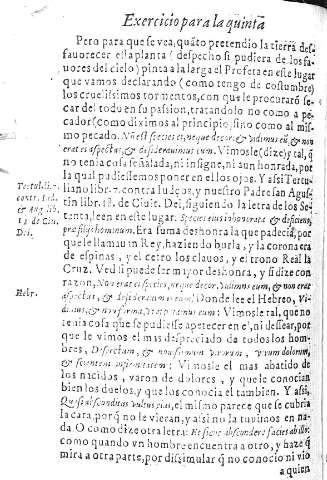 Exercicio para la quinta
Pero para que se vea, quãto pretendio la tierra des-
fauorecer esta planta (despecho si pudiera de los fa-
uores del cielo) pinta a la larga el Profeta en este lugar
que vamos declarando (como tengo de costumbre)
los cruelissimos tormentos, con que le procuraró se-
car del todo en su passion, tratandolo no como a pe-
cador (como diximos al principio) sino como al mis-
mo pecado. Nõ est species ei, neque decor. & vidimus eũ, & non
erat ei aspectus, & desiderauimus eum. Vimosle (dize) y tal, q̃
no tenia cosa señalada, ni insigne, ni aun honrada, por
la qual pudiessemos poner en el los ojos. Y assi Tertu-
liano libr. 7. contra Iudęos, y nuestro Padre san Agus-
tin libr. 18. de Ciuit. Dei, siguiendo la letra de los Se-
tenta, leen en este lugar. Species eius inhonorata & deficiens,
præ filijs hominum. Era suma deshonra la que padecia, por
que le llamauan Rey, haziendo burla, y la corona era
de espinas, y el cetro los clauos, y el trono Real la
Cruz. Ved si puede ser mayor deshonra, y si dize con
razon, Non erat ei species, neque decor. Vidimus eum, & non erat
aspectus, & desiderauimus eum. Donde lee el Hebreo, Vi-
dimus, & non forma, vt optemus eum: Vimosle tal, que no
tenia cosa que se pudiesse apetecer en el, ni dessear, por
que le vimos el mas despreciado de todos los hom-
bres, Despectum, & nouissimum virorum, virum dolorum,
& scientem infirmitatem: Vimosle el mas abatido de
los nacidos, varon de dolores, y que le conocian
bien los duelos, y que los conocia el tambien. Y assi,
Quasi absconditus vultus eius, el mismo parece que se cubria
la cara, porq̃ no le vieran, y assi no la tuuimos en na-
da. O como dize otra letra: Et sicut abscondere facies ab illo:
como quando vn hombre encuentra a otro, y haze q̃
mira a otra parte, por dissimular q̃ no conocio ni vio
a quien
Tertul. li-
contr. Iud.
& Aug. lib.
18 de Ciu.
Dei.
Hebr.